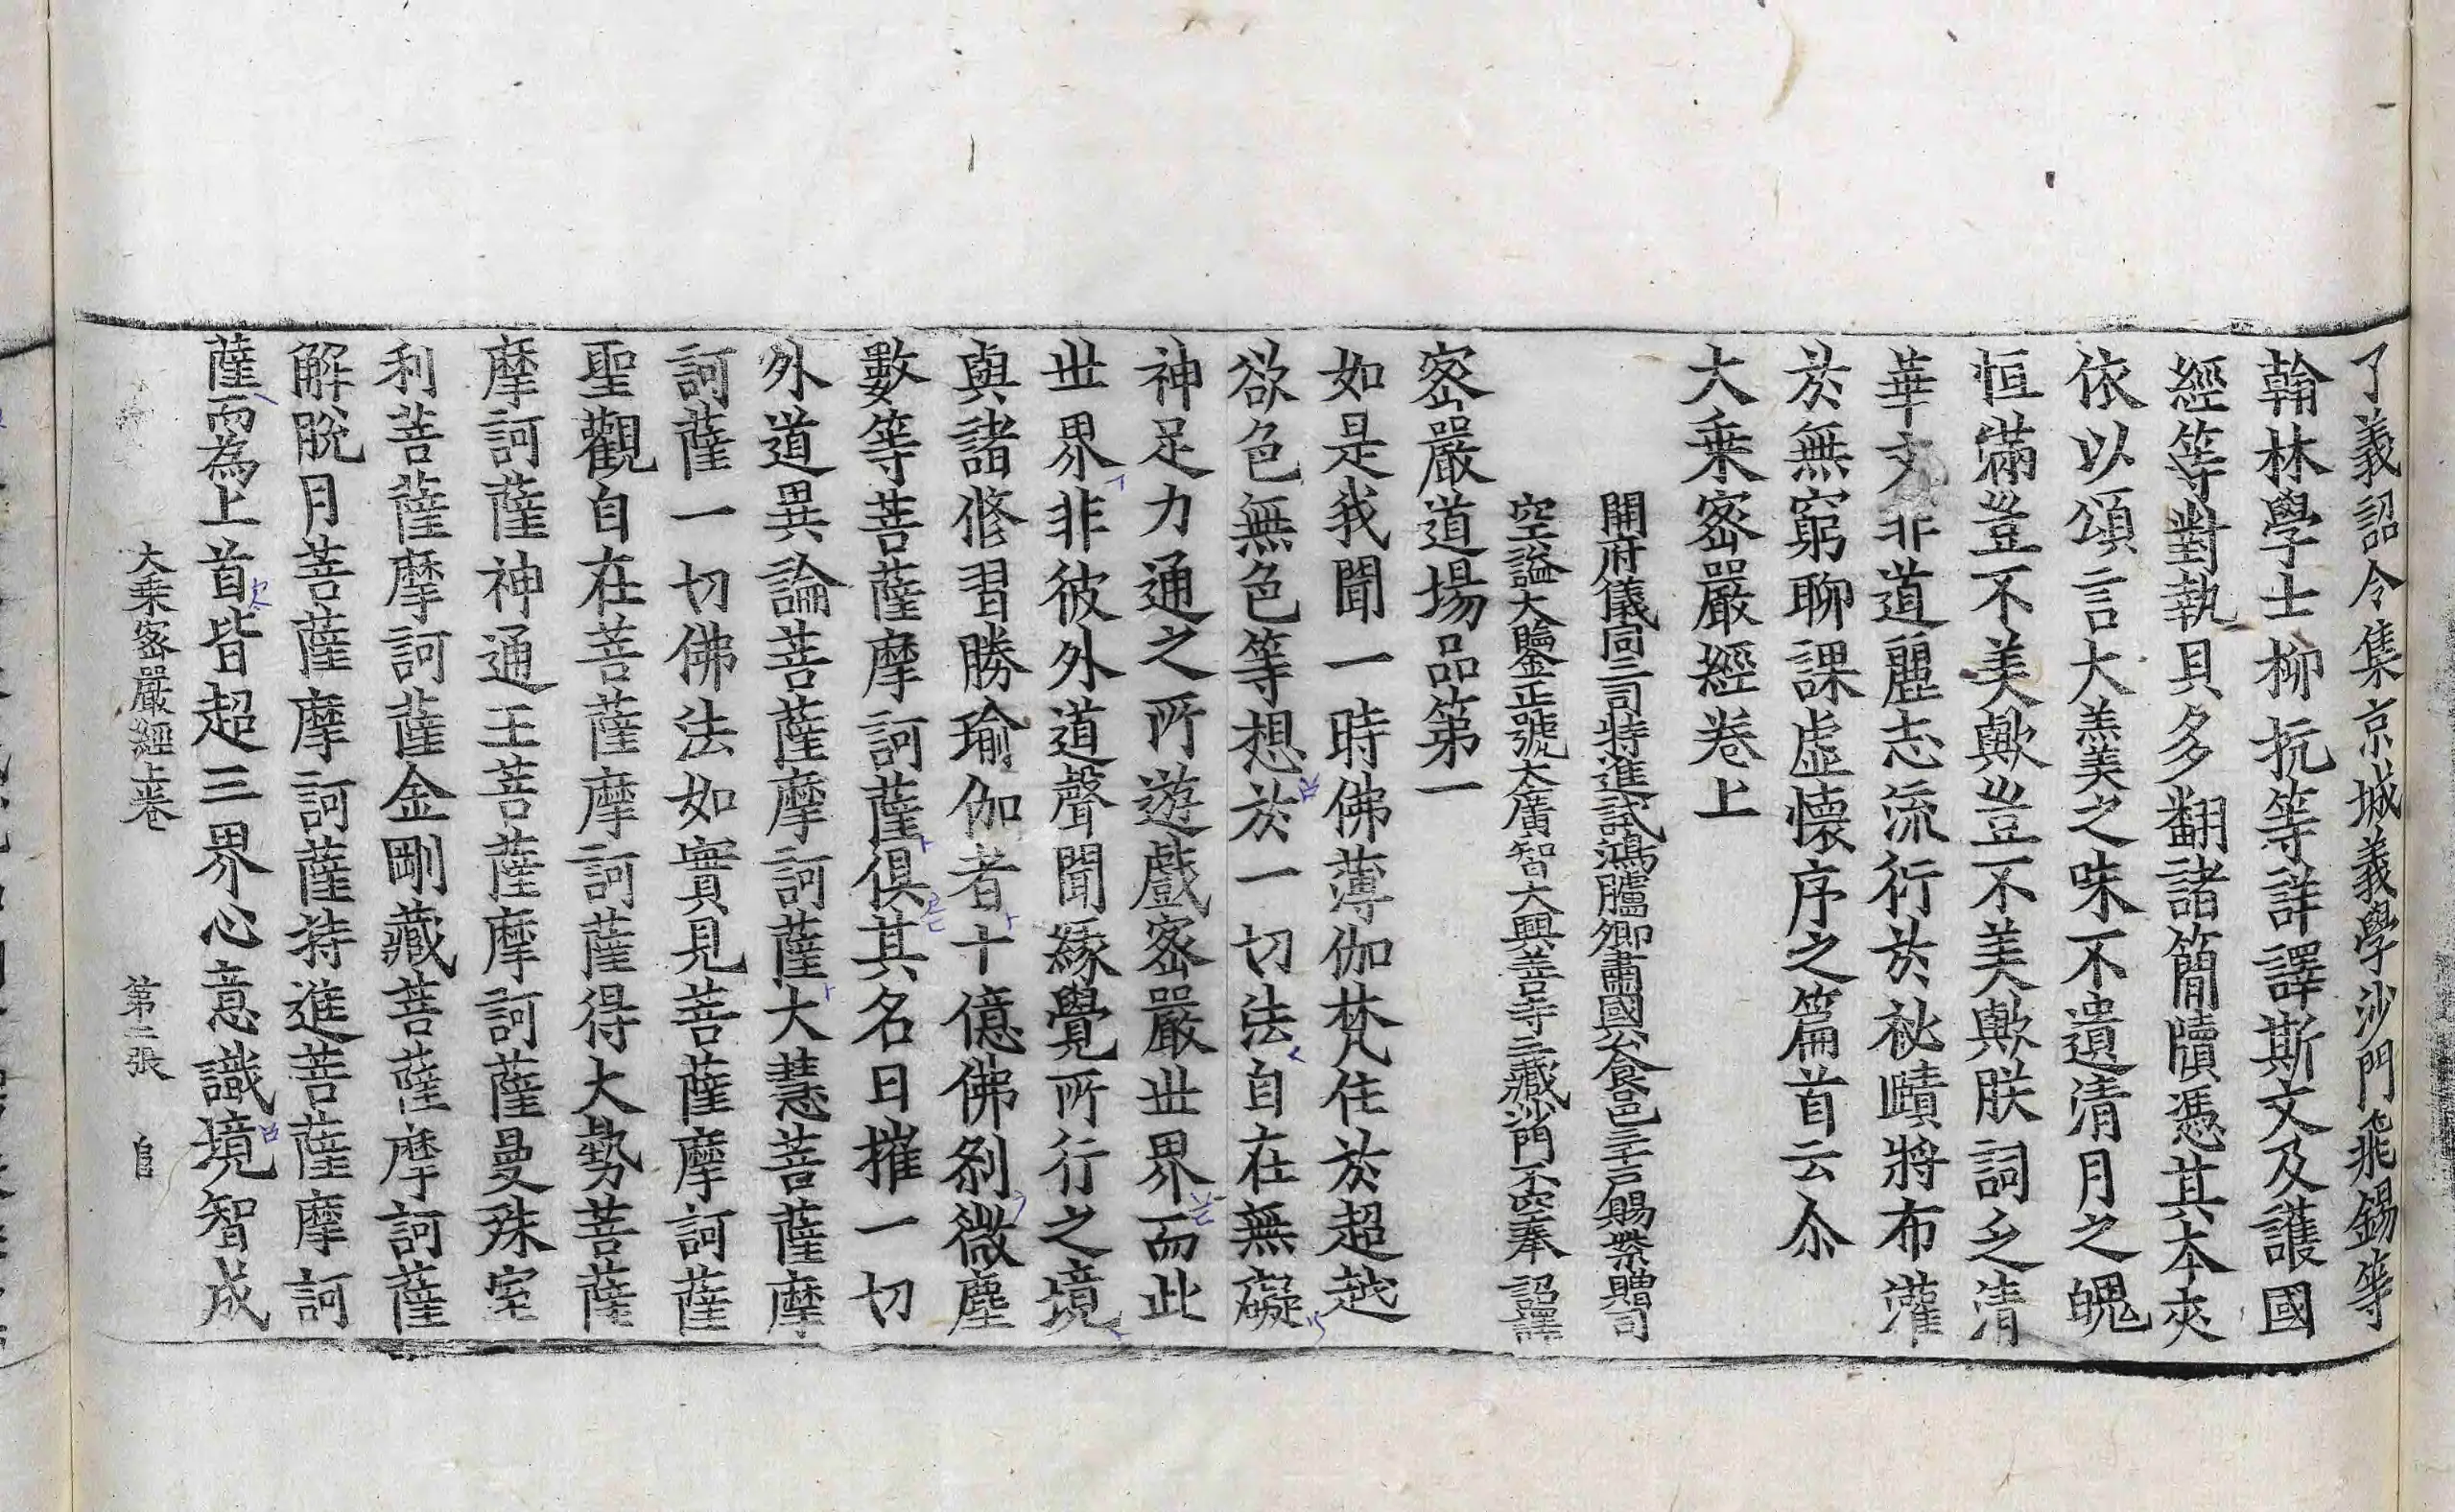 了義詔令集京城義學沙門飛錫等
翰林學士柳抗等詳譯斯文及護國
經等對執貝多翻諸簡牘憑其本夾
依以頌言大羹美之味不遺清月之魄
恒滿豈不美歟豈不美歟朕詞乏清
華文非道麗志流衍於秘賾將布灌
於無窮聊課虛懷序之篇首云尒
大乗宻嚴經卷上
開府儀同三司特進試鴻臚卿肅國公食邑三千戸賜紫贈司
空謚大鑒正號大廣智大興善寺三藏沙門不空奉 詔譯
宻嚴道場品第一
如是我聞一時佛薄伽梵住於超越
欲色無色等想於一切法自在無礙
神足力通之所遊戲宻嚴世界而此
世界非彼外道聲聞緣覺所行之境
與諸修習勝瑜伽者十億佛剎微塵
數等菩薩摩訶薩俱其名曰摧一切
外道異論菩薩摩訶薩大慧菩薩摩
訶薩一切佛法如實見菩薩摩訶薩
聖觀自在菩薩摩訶薩得大勢菩薩
摩訶薩神通王菩薩摩訶薩曼殊室
利菩薩摩訶薩金剛藏菩薩摩訶薩
解脫月菩薩摩訶薩持進菩薩摩訶
薩而為上首皆超三界心意識境智成
大乗宻嚴經上卷 第二張 自